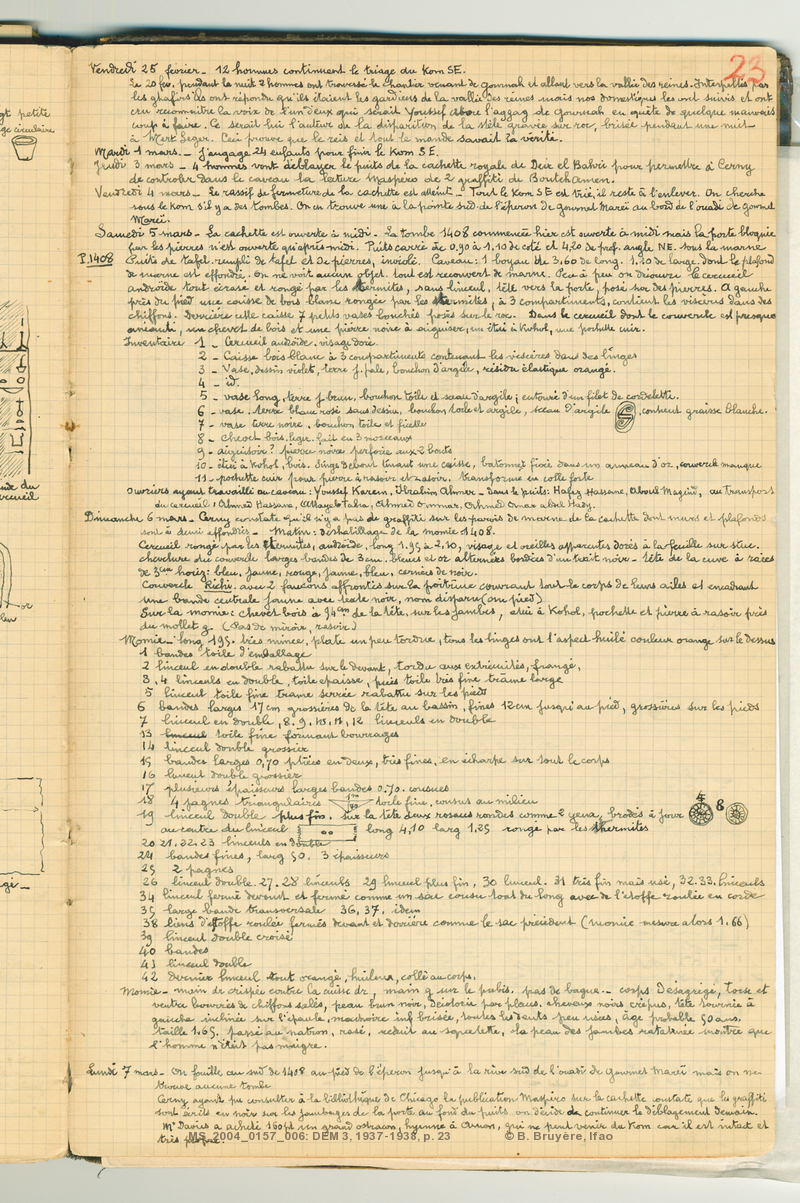 23
Vendredi 25 février - 12 hommes continuent le triage du Kom SE.
Le 20 fév. pendant la nuit 2 hommes ont traversé le chantier venant de gournah et allant vers la vallée des reines. Interpellés par
les ghafirs ils ont répondu qu'ils étaient les gardiens de la vallée des reines mais nos domestiques les ont suivis et ont
cru reconnaître la voix de l'un deux qui serait Youssef abou l'aggag de gournah en quête de quelque mauvais
coup à faire. Ce serait lui l'auteur de la disparition de la stèle gravée sur roc, brisée pendant une nuit
à Mert Seger. Ceci prouve que le reis et tout le monde savait la vérité.
Mardi 1 mars - J'engage 24 enfants pour finir le Kom S.E.
Jeudi 3 mars - 4 hommes vont déblayer le puits de la cachette royale de Deir el Bahri pour permettre à Cerny
de controler dans le caveau la lecture Maspero de 2 graffiti de Boutehamen.
Vendredi 4 mars - Le massif de fermeture de la cachette est atteint - Tout le Kom SE est trié, il reste à l'enlever. On cherche
sous le kom s'il y a des tombes. On en trouve une à la pointe sud de l'éperon de gournet Mareï au bord de l'ouadi de gournet
Mareï.
Samedi 5 mars - La cachette est ouverte à midi - La tombe 1408 commencée hier est ouverte à midi mais la porte bloquée
par les pierres n'est ouverte qu'après midi. Puits carré de 0,90 à 1,10 de coté et 4,20 de prof. angle NE. sous la marne
P.1408 Puits de tafel. rempli de tafel et de pierres, inviolé. Caveau: 1 boyau de 3,60 de long. 1,20 de large. dont le plafond
de marne est effondré. On ne voit aucun objet. tout est recouvert de marne. Peu à peu on découvre le cercueil
androïde tout écrasé et rongé par les thermites, sans linceul, tête vers la porte, posé sur des pierres. A gauche
près du pied une caisse de bois blanc rongée par les thermites, à 3 compartiments, contient les viscères dans des
chiffons. Derrière cette caisse 7 petits vases bouchés posés sur le roc. Dans le cercueil dont le couvercle est presque
anéanti, un chevet de bois et une pierre noire à aiguiser, un étui à Kohol, une pochette cuir.
Inventaire 1 - Cercueil androïde, visage doré.
2 - Caisse bois blanc à 3 compartiments contenant les viscères dans des linges
3 - Vase, dessin violet, terre j. pale, bouchon d'argile, résidu élastique orange.
4 - id.
5 - vase long, terre j. brun, bouchon toile et sceau d'argile; entouré d'un filet de cordelette.
6 - vase. terre blanc rosé sans dessin, bouchon toile et argile, sceau d'argile, contient graisse blanche.
7 - vase terre noire, bouchon toile et ficelle
8 - Chevet bois léger. fait en 3 morceaux
9 - aiguisoir? pierre noire perforée aux 2 bouts
10 - étui à Kohol, bois. Singe debout tenant une caisse, batonnet fixé dans un anneau d'or, couvercle manque
11 - pochette cuir pour pierre à rasoir et rasoir, transformé en colle forte
Ouvriers ayant travaillé au caveau: Youssef Karem, Ibrahim Ahmer - dans le puits: Hafez Hassane, Aboul Magrid, au transport
du cercueil: Ahmed Hassane, Ahmed Ommar, Ahmed Omar abdel Hady.
Dimanche 6 mars - Cerny constate qu'il n'y a pas de graffiti sur les parois de marne de la cachette dont murs et plafonds
sont à demi effondrés - Matin: déshabillage de la momie 1408.
Cercueil rongé par les thermites, androïde, long 1.95 à 2,10, visage et oreilles apparentes dorés à la feuille sur stuc.
chevelure du couvercle larges bandes de 3 cm. bleues et or alternées bordées d'un trait noir - tête de la cuve à raies
de 3 cm horiz: bleu, jaune, rouge, jaune, bleu, cernées de noir.
Couvercle Richi. avec 2 faucons affrontés sur la poitrine couvrant tout le corps de leurs ailes et encadrant
une bande centrale jaune avec texte noir, nom disparu (au pied)
Sur la momie: Chevet bois à 94 cm de la tête, sur les jambes, étui à Kohol, pochette et pierre à rasoir près
du mollet g. (Pas de miroir, rasoir)
Momie - long 195. très mince, plate un peu tordue, tous les linges ont l'aspect huilé couleur orange sur le dessus
1 bandes toile d'emballage
2 linceul en double rabattu sur le devant, tordu aux extrémités, frangé,
3, 4 linceuls en double, toile épaisse, puis toile très fine trame large
5 linceul toile fine trame serrée rabattu sur les pieds
6 bandes larges 17 cm grossières de la tête au bassin, fines 12 cm jusqu'au pied, grossières sur les pieds
7 linceul en double, 8. 9. 10. 11, 12 linceuls en double
13 linceul toile fine formant bourrages
14 linceul double grossier
15 bandes larges 0,70 pliées en deux, très fines, en écharpe sur tout le corps
16 linceul double grossier
17 plusieurs épaisseurs larges bandes 0.70. cousues
18 4 pagnes triangulaires toile fine, cousus au milieu
19 linceul double plus fin. sur la tête deux rosaces rondes comme 2 yeux, brodés à jour 8
au centre du linceul long 4,10 larg 1,25 rongé par les thermites
20 21. 22. 23 linceuls en double
24 bandes fines, larg 50. 3 épaisseurs
25 2 pagnes
26 linceul double. 27. 28 linceuls 29 linceul plus fin, 30 linceul. 31 très fin mais usé, 32. 33. linceuls
34 linceul fermé devant et fermé comme un sac cousu tout du long avec de l'étoffe roulée en corde
35 large bande transversale 36, 37, idem
38 liens d'étoffe roulée fermés devant et derrière comme le sac précédent (momie mesure alors 1.66)
39 linceul double croisé
40 bandes
41 linceul double
42 Dernier linceul tout orangé, huileux, collé au corps.
Momie - main dr crispée contre la cuisse dr, main g sur le pubis. pas de bague - corps désagrégé, torse et
ventre bourrés de chiffons salés, peau brun noir, décolorée par places. cheveux noirs crépus, tête tournée à
gauche inclinée sur l'épaule, machoire inf brisée, toutes les dents peu usées, âge probable 50 ans.
taille 1.65. passé au natron, rasé, réduit au squelette, la peau des jambes ratatinée montre que
l'homme n'était pas maigre.
Lundi 7 mars - On fouille au sud de 1408 au pied de l'éperon jusqu'à la rive sud de l'ouadi de gournet Mareï mais on ne
trouve aucune tombe
Cerny ayant pu consulter à la bibliothèque de Chicago la publication Maspero sur la cachette constate que les graffiti
sont écrits en noir sur les jambages de la porte au fond du puits. on décide de continuer le déblaiement demain.
Mr Davies a acheté 160 pt un grand ostracon, hymne à Amon, qui ne peut venir du Kom car il est intact et
très
MS_2004_0157_006: DEM 3, 1937-1938, p. 23 © B. Bruyère, Ifao